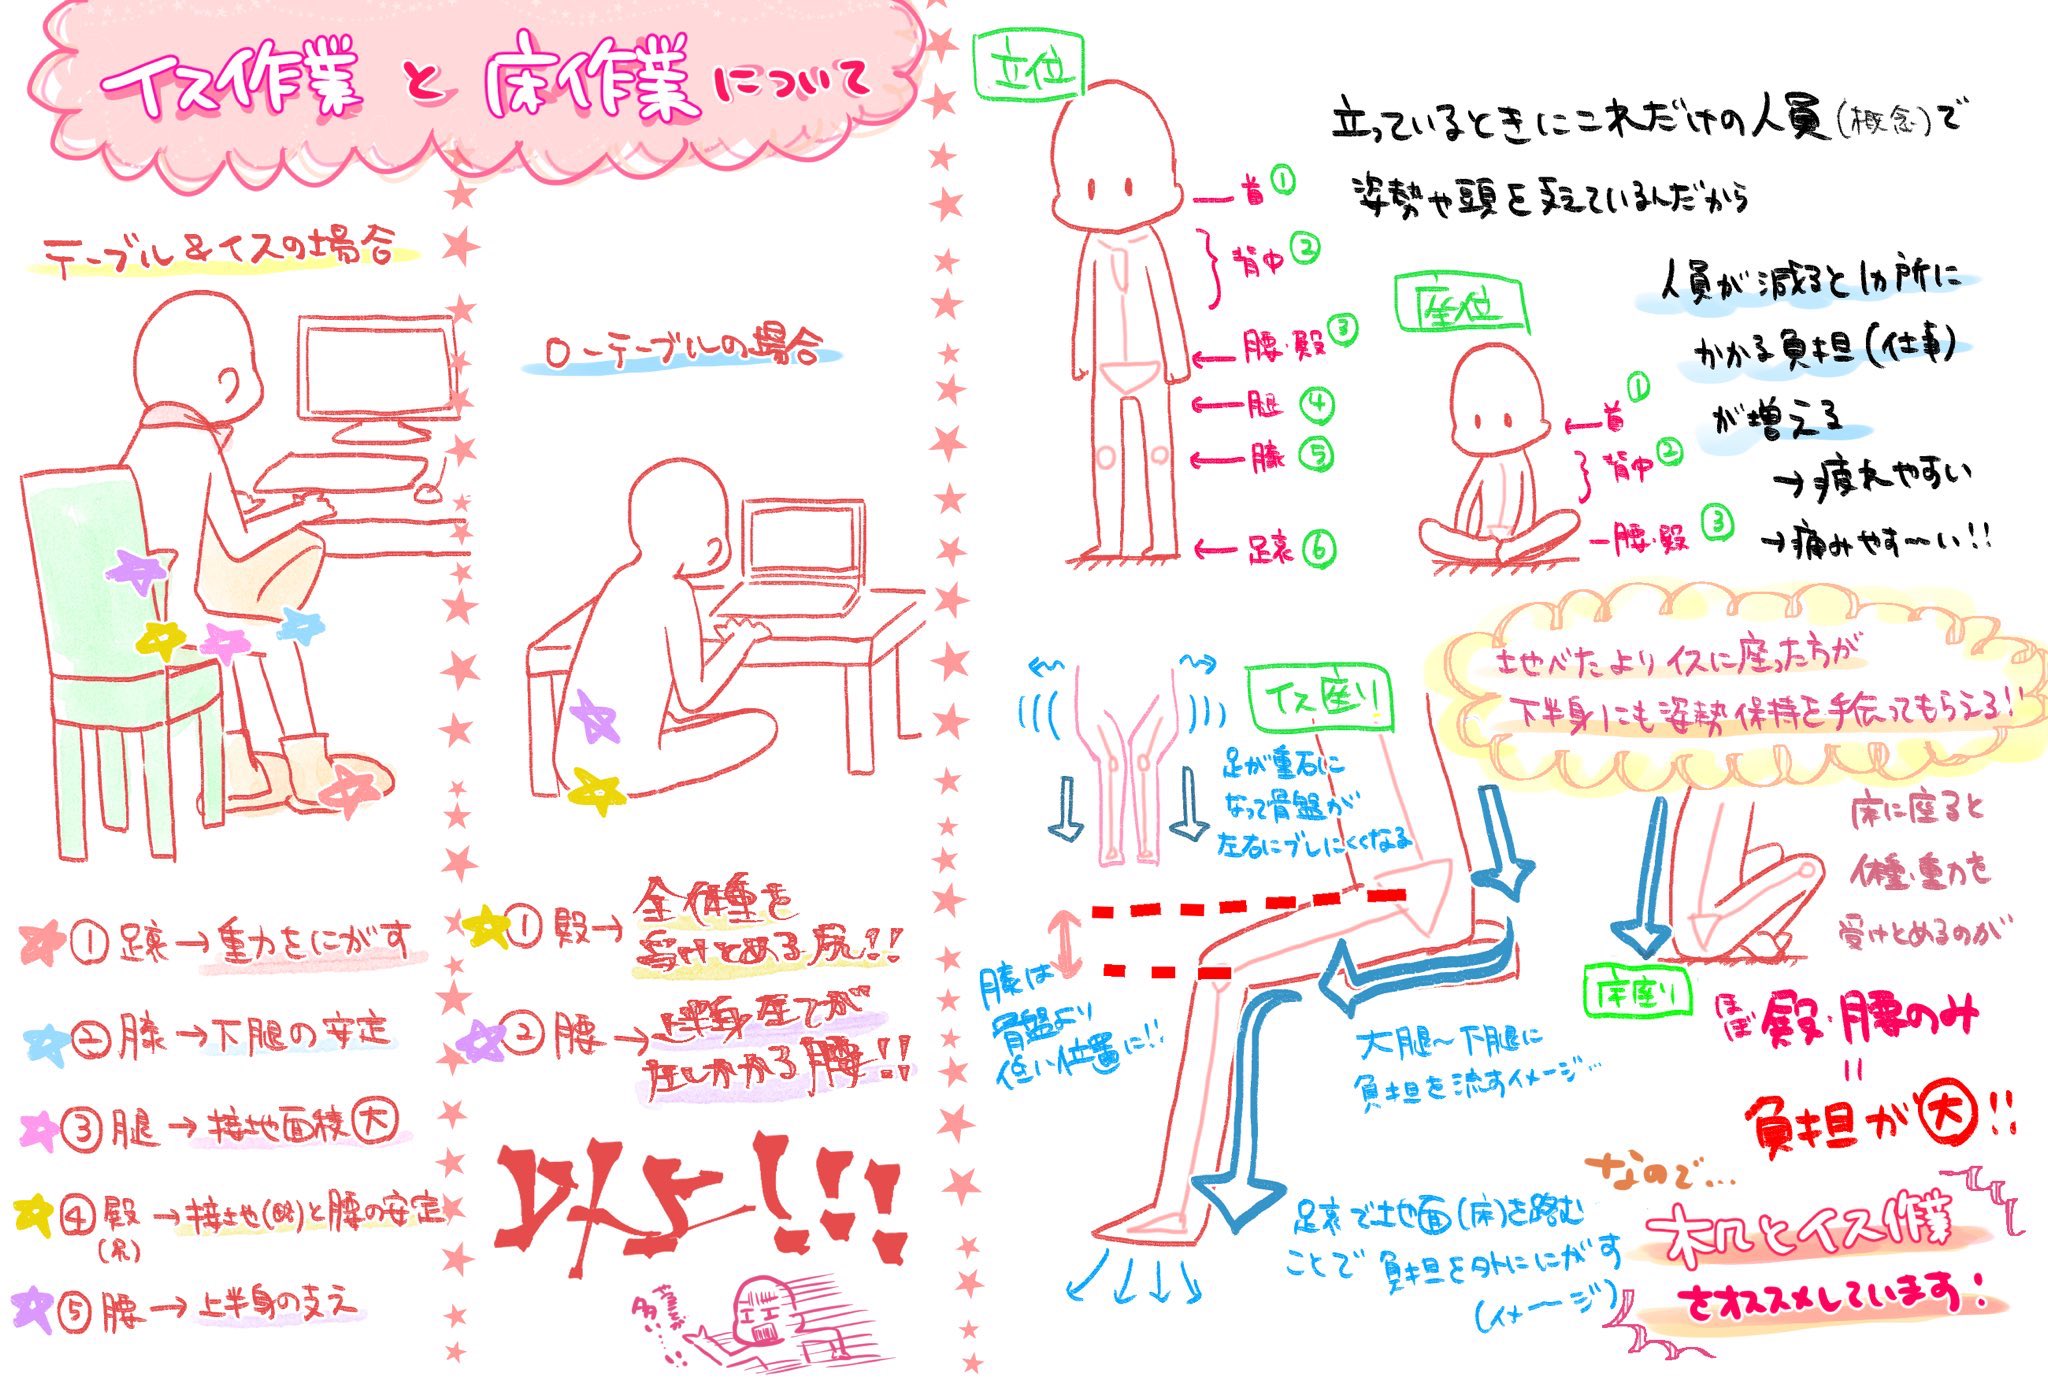 イス作業と床作業について
テーブル&イスの場合
①足裏→重力をにがす
②膝→下腿の安定
③腿→接地面積大
④殿→接地(略)と腰の安定
(尻)
⑤腰→上半身の支え
ローテーブルの場合
①殿→全体重を
受けとめる尻!!
②腰→上半身全てが
圧しかかる腰!!
多い…
立位
首①
背中②
腰・殿③
腿④
膝⑤
足裏⑥
立っているときにこれだけの人員(概念)で
姿勢や頭を支えているんだから
座位
首①
背中②
腰・殿③
人員が減ると1カ所に
かかる負担(仕事)
が増える
→疲れやすい
→痛みやす〜い!!
地べたよりイスに座った方が
下半身にも姿勢保持を手伝ってもらえる!!
イス座り
足が重石に
なって骨盤が
左右にブレにくくなる
膝は
骨盤より
低い位置に!!
大腿〜下腿に
負担を流すイメージ…
足裏で地面(床)を踏む
ことで負担を外ににがす
(イメージ)
床座り
床に座ると
体重・重力を
受けとめるのが
ほぼ殿・腰のみ
=
負担が大!!
なので…
机とイス作業
をオススメしています!